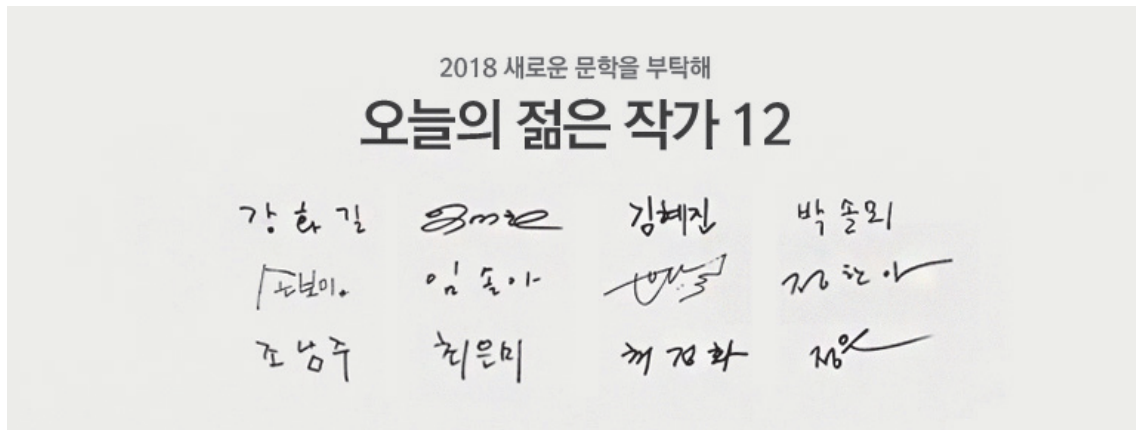 2018 새로운 문학을 부탁해
오늘의 젊은 작가 12
강화길 김혜진 박솔뫼
손보미. 임솔아 정한아
조남주 최은미 최정화